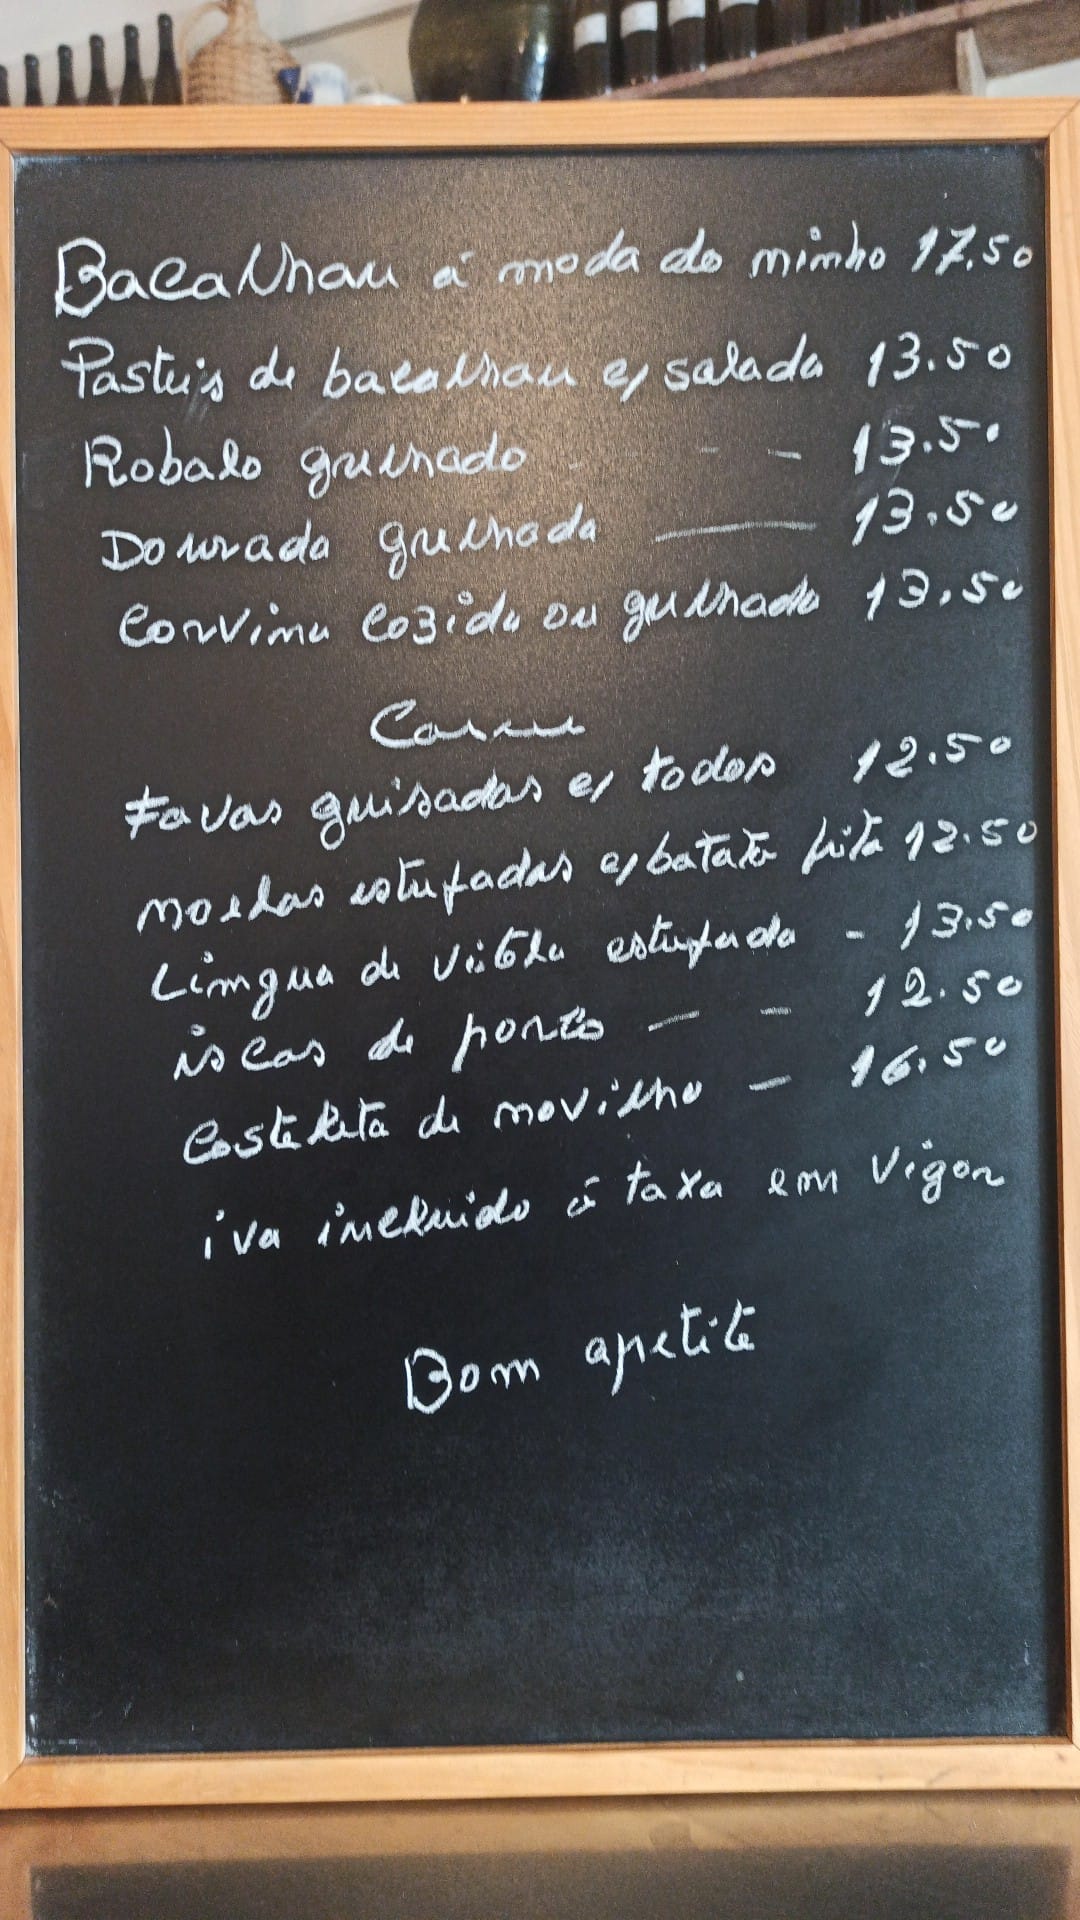 Bacalhau á moda do minho 17.50
Pasteis de bacalhau c/ salada 13.50
Robalo grelhado - - - - 13.50
Dourada grelhada — 13.50
Corvina cozida ou grelhada 13.50
Carne
Favas guisadas c/ todos 12.50
moelas estufadas c/ batata frita 12.50
Lingua de vitela estufada - 13.50
iscas de porco - - 12.50
Costeleta de novilho - 16.50
iva incluido á taxa em vigor
Bom apetite